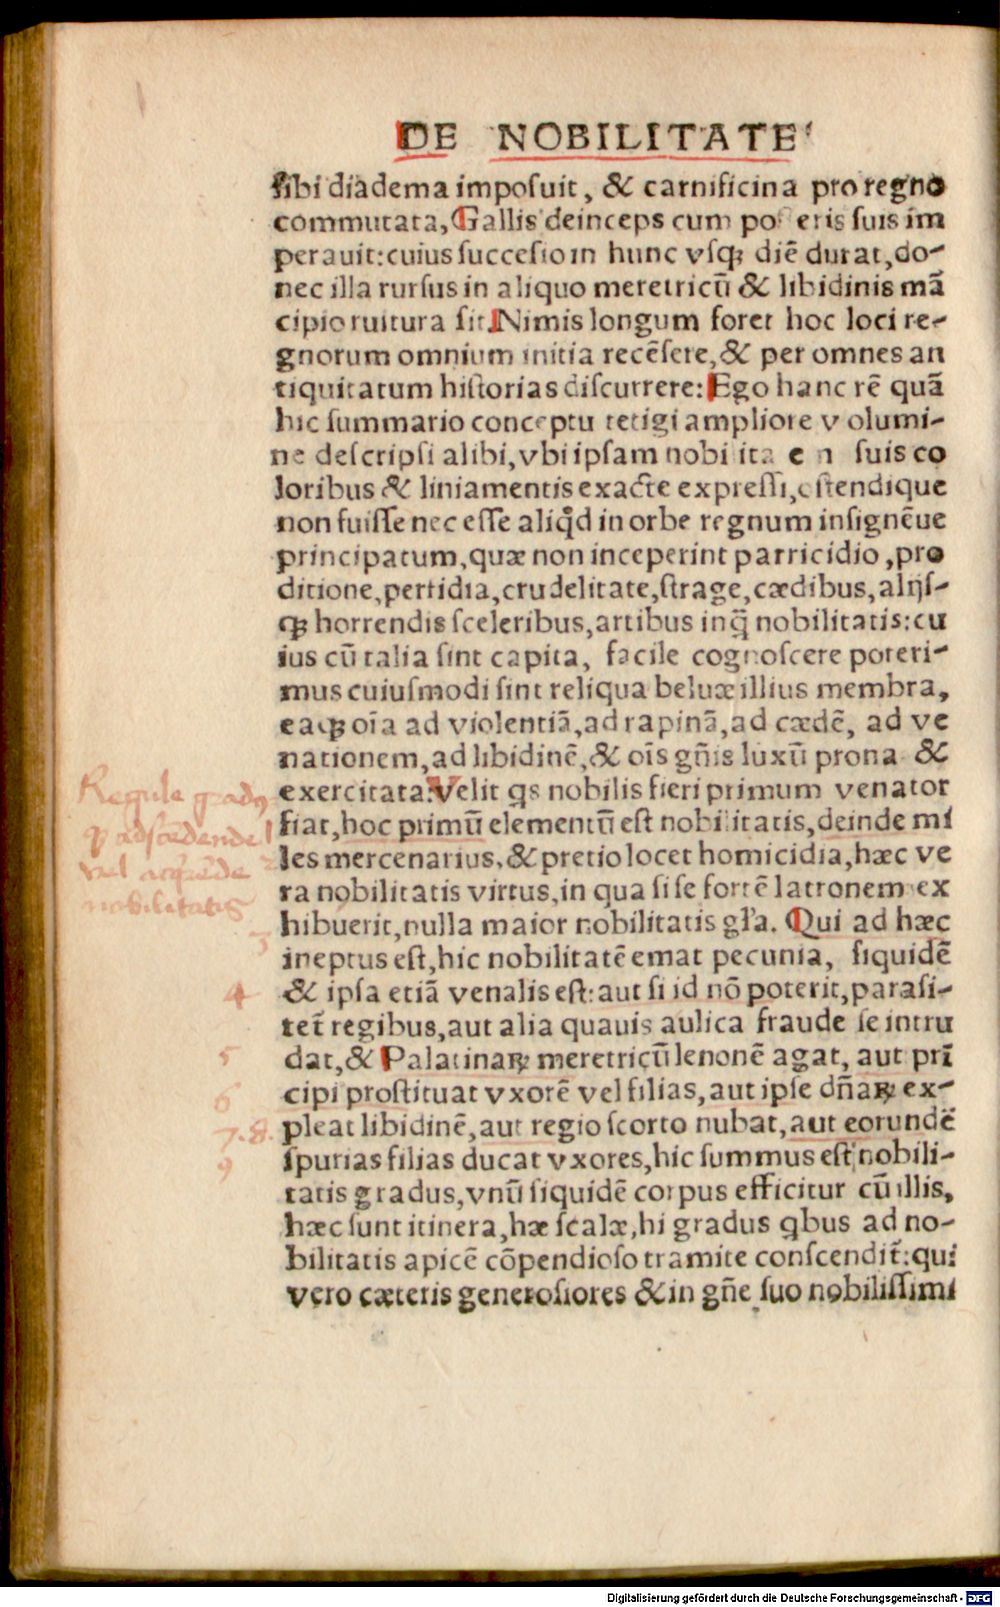 DE NOBILITATE
ſibi diadema impoſuit, & carnificina pro regno
commutata, Gallis deinceps cum poſteris ſuis im
perauit: cuius ſucceſio in hunc vſqꝫ diē durat, do-
nec illa rurſus in aliquo meretricū & libidinis mā
cipio ruitura ſit. Nimis longum foret hoc loci re-
gnorum omnium initia recēſere, & per omnes an
tiquitatum hiſtorias diſcurrere: Ego hanc rē quā
hic ſummario conceptu tetigi ampliore volumi-
ne deſcripſi alibi, vbi ipſam nobilitatē ſuis co
loribus & liniamentis exacte expreſſi, oſtendique
non fuiſſe nec eſſe aliqd in orbe regnum inſignēue
principatum, quæ non inceperint parricidio, pro
ditione, perfidia, crudelitate, ſtrage, cædibus, alijſ-
qꝫ horrendis ſceleribus, artibus inq̄ nobilitatis: cu
ius cū talia ſint capita, facile cognoſcere poteri-
mus cuiuſmodi ſint reliqua beluæ illius membra,
eaqꝫ oīa ad violentiā, ad rapinā, ad cædē, ad ve
nationem, ad libidinē, & oīs gn̄is luxū prona &
exercitata. Velit qs nobilis fieri primum venator
fiat, hoc primū elementū eſt nobilitatis, deinde mi
les mercenarius, & pretio locet homicidia, hæc ve
ra nobilitatis virtus, in qua ſi ſe fortē latronem ex
hibuerit, nulla maior nobilitatis gl̄a. Qui ad hæc
ineptus eſt, hic nobilitatē emat pecunia, ſiquidē
& ipſa etiā venalis eſt: aut ſi id nō poterit, paraſi-
tet̄ regibus, aut alia quauis aulica fraude ſe intru
dat, & Palatinaꝝ meretricū lenonē agat, aut prī
cipi proſtituat vxorē vel filias, aut ipſe dn̄aꝝ ex-
pleat libidinē, aut regio ſcorto nubat, aut eorundē
ſpurias filias ducat vxores, hic ſummus eſt nobili-
tatis gradus, vnū ſiquidē corpus efficitur cū illis,
hæc ſunt itinera, hæ ſcalæ, hi gradus qbus ad no-
bilitatis apicē cōpendioſo tramite conſcendit̄: qui
vero cæteris generoſiores & in gn̄e ſuo nobiliſſimi
Regule
vel
nobilitatis
1
2
3
4
5
6
7. 8.
9
Digitalisierung gefördert durch die Deutsche Forschungsgemeinschaft - DFG